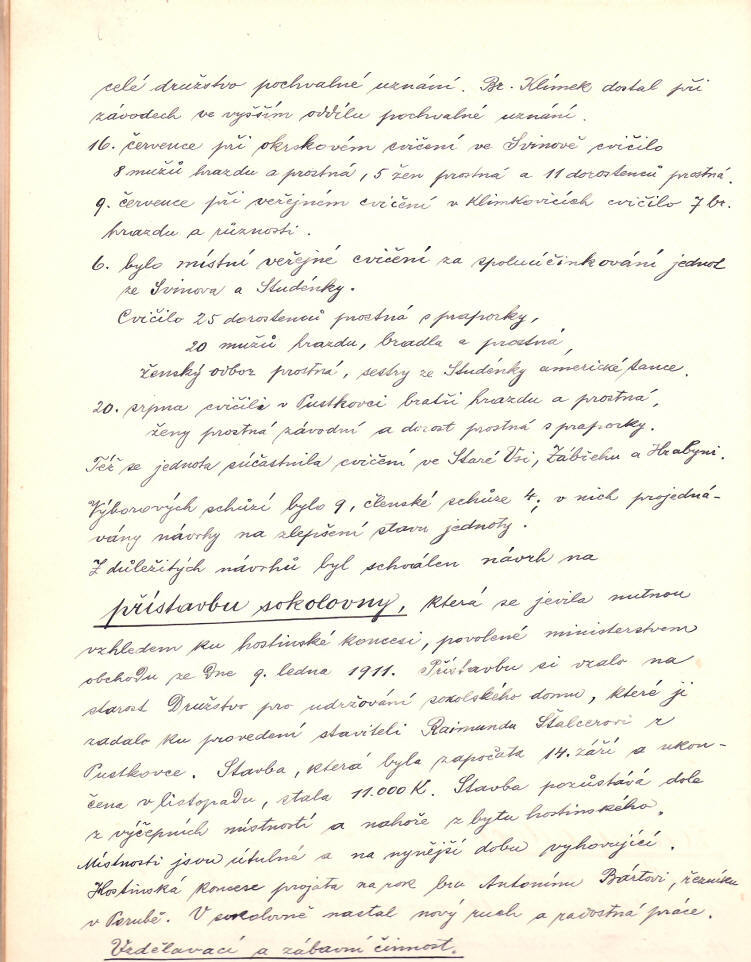 celé družstvo pochvalné uznání. Br. Klímek dostal při
závodech ve vyšším oddílu pochvalné uznání.
16. července při okrskovém cvičení ve Svinově cvičilo
8 mužů hrazdu a prostná, 5 žen prostná a 11 dorostenců prostná.
9. července při veřejném cvičení v Klimkovicích cvičilo 7 br.
hrazdu a různosti.
6. bylo místní veřejné cvičení za spoluúčinkování jednot
ze Svinova a Studénky.
Cvičilo 25 dorostenců prostná s praporky,
20 mužů hrazdu, bradla a prostná,
ženský odbor prostná, sestry ze Studénky americké tance.
20. srpna cvičili v Pustkovci bratři hrazdu a prostná,
ženy prostná závodní a dorost prostná s praporky.
Též se jednota súčastnila cvičení ve Staré Vsi, Zábřehu a Hrabyni.
Výborových schůzí bylo 9, členské schůze 4; v nich projedná-
vány návrhy na zlepšení stavu jednoty.
Z důležitých návrhů byl schválen návrh na
přístavbu sokolovny, která se jevila nutnou
vzhledem ku hostinské koncesi, povolené ministerstvem
obchodu ze dne 9. ledna 1911. Přístavbu si vzalo na
starost Družstvo pro udržování sokolského domu, které ji
zadalo ku provedení staviteli Raimundu Štalcerovi z
Pustkovce. Stavba, která byla započata 14. září a ukon-
čena v listopadu, stála 11.000 K. Stavba pozůstává dole
z výčepních místností a nahoře z bytu hostinského.
Místnosti jsou útulné a na nynější dobu vyhovující.
Hostinská koncese projata na rok bru Antonínu Bártovi, řezníku
v Porubě. V sokolovně nastal nový ruch a radostná práce.
Vzdělavací a zábavní činnost.